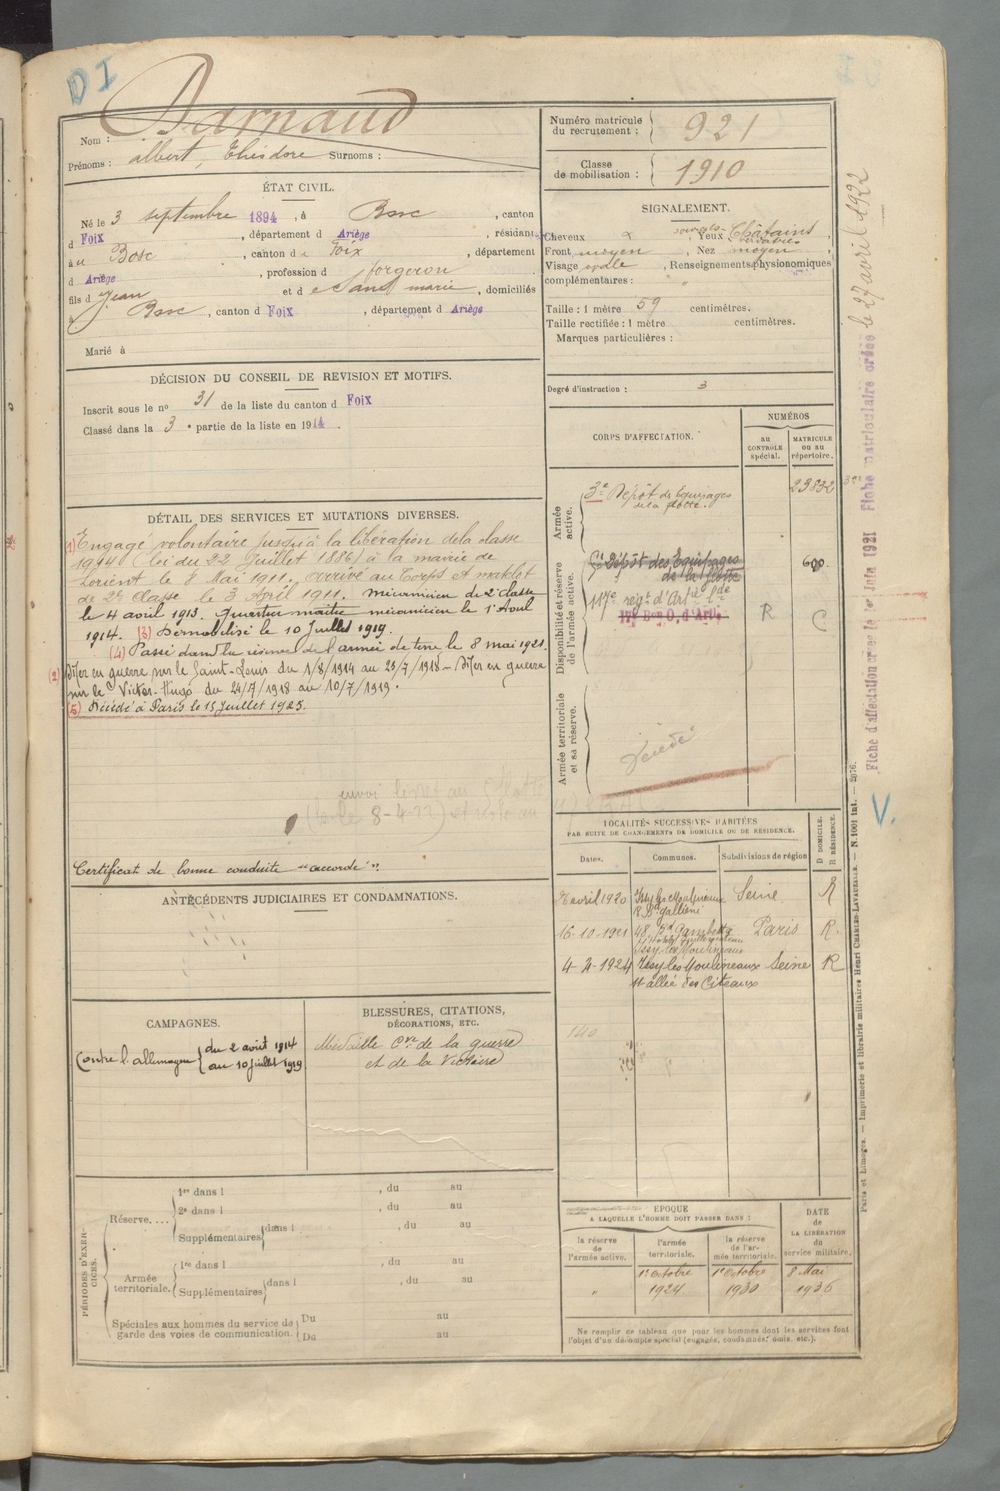 DI
Nom : Darnaud
Prénoms : Albert, Théodore Surnoms :
Numéro matricule du recrutement : 921
Classe de mobilisation : 1910
ÉTAT CIVIL.
Né le 3 septembre 1894, à Bosc, canton
d Foix, département d Ariège, résidant
à Bosc, canton de Foix, département
d Ariège, profession d forgeron
fils d Jean et d marie, domiciliés
à Bosc, canton d Foix, département d Ariège
Marié à
SIGNALEMENT.
Cheveux, Yeux Châtains
Front moyen, Nez moyen,
Visage ovale, Renseignements physionomiques
complémentaires : "
Taille : 1 mètre 59 centimètres.
Taille rectifiée : 1 mètre centimètres.
Marques particulières :
Degré d'instruction : 3
DÉCISION DU CONSEIL DE REVISION ET MOTIFS.
Inscrit sous le nº 31 de la liste du canton d Foix
Classé dans la 3e partie de la liste en 1914.
DÉTAIL DES SERVICES ET MUTATIONS DIVERSES.
(1) Engagé volontaire jusqu'à la libération de la classe
1914 (loi du 22 Juillet 1886) à la mairie de
Lorient le 8 Mai 1911. arrivé au Corps et matelot
de 2e classe le 3 Avril 1911. mécanicien de 2e classe
le 4 avril 1913. Quartier maître mécanicien le 1er Avril
1914. (3) Démobilisé le 10 Juillet 1919.
(4) Passé dans la réserve de l'armée de terre le 8 mai 1921.
(2) Mer en guerre sur le Saint-Louis du 1/8/1914 au 23/7/1918 - Mer en guerre
sur le Victor-Hugo du 24/7/1918 au 10/7/1919.
(5) Décédé à Paris le 15 Juillet 1925.
8-4-22)
Certificat de bonne conduite "accordé".
CORPS D'AFFECTATION.
NUMÉROS
AU CONTRÔLE spécial.
MATRICULE ou au répertoire.
Armée active.
3e Dépôt des Equipages de la flotte. 23832
Disponibilité et réserve de l'armée active.
Dépôt des Equipages de la flotte 600
117e régt d'Artie lde
R C
17e Bon O. d'Artie
Armée territoriale et sa réserve.
Décédé
Fiche d'affectation créée le 1er Juin 1921
Fiche matriculaire créée le 27 avril 1922
V.
LOCALITÉS SUCCESSIVES HABITÉES
PAR SUITE DE CHANGEMENTS DE DOMICILE OU DE RÉSIDENCE.
D DOMICILE. R RÉSIDENCE.
Dates. Communes. Subdivisions de région
avril 1920 Issy les Moulineaux Seine R
R. Bd Gallieni
16-10-1921 48, Bd Gambetta Paris R.
Issy-les-Moulineaux
4-4-1924 Issy les Moulineaux Seine R
11 allée des Citeaux
140
ANTÉCÉDENTS JUDICIAIRES ET CONDAMNATIONS.
CAMPAGNES.
Contre l'allemagne du 2 août 1914
au 10 Juillet 1919
BLESSURES, CITATIONS,
DÉCORATIONS, ETC.
Médaille Cve de la guerre
et de la Victoire
PÉRIODES D'EXERCICES.
Réserve....
1re dans l , du au
2e dans l , du au
Supplémentaires dans l , du au
Armée territoriale.
1re dans l , du au
Supplémentaires dans l , du au
Spéciales aux hommes du service de garde des voies de communication. Du au
Du au
EPOQUE
A LAQUELLE L'HOMME DOIT PASSER DANS :
la réserve de l'armée active.
l'armée territoriale.
la réserve de l'armée territoriale.
DATE de LA LIBÉRATION du service militaire.
" 1er Octobre 1924 1er Octobre 1930 8 Mai 1936
Ne remplir ce tableau que pour les hommes dont les services font
l'objet d'un décompte spécial (engagés, condamnés, omis, etc.).
Paris et Limoges. — Imprimerie et librairie militaires Henri CHARLES-LAVAUZELLE. — N. 1001 int. — 2076.